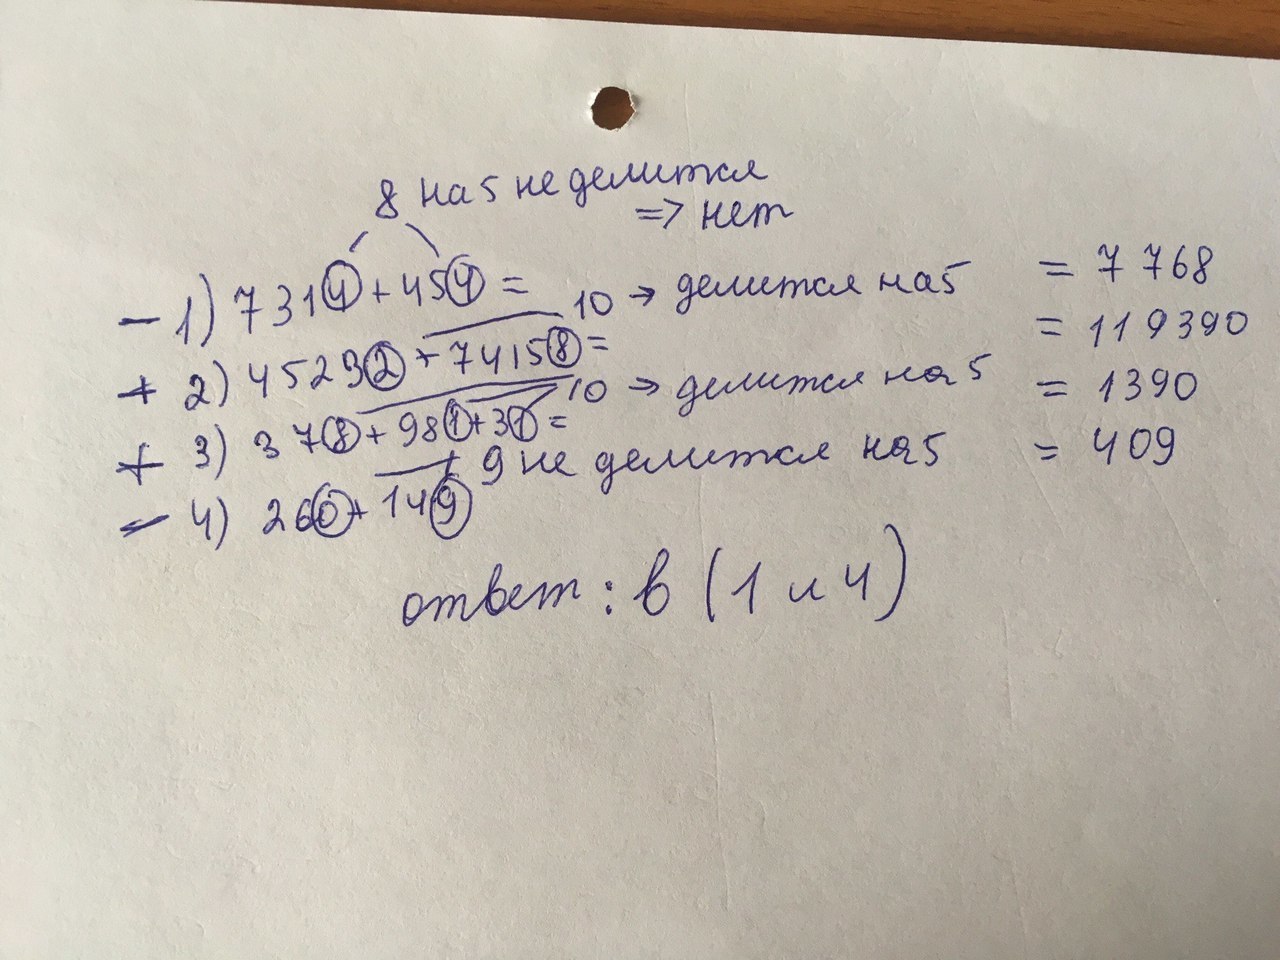 8 на 5 не делится
=> нет
- 1) 7314 + 454 = = 7 768
10 → делится на 5
+ 2) 45292 + 74158 = = 119390
10 → делится на 5
+ 3) 378 + 981 + 31 = = 1390
9 не делится на 5
- 4) 260 + 149 = 409
ответ: в (1 и 4)